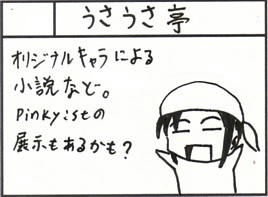 うさうさ亭
オリジナルキャラによる
小説など。
Pinky:stの
展示もあるかも?